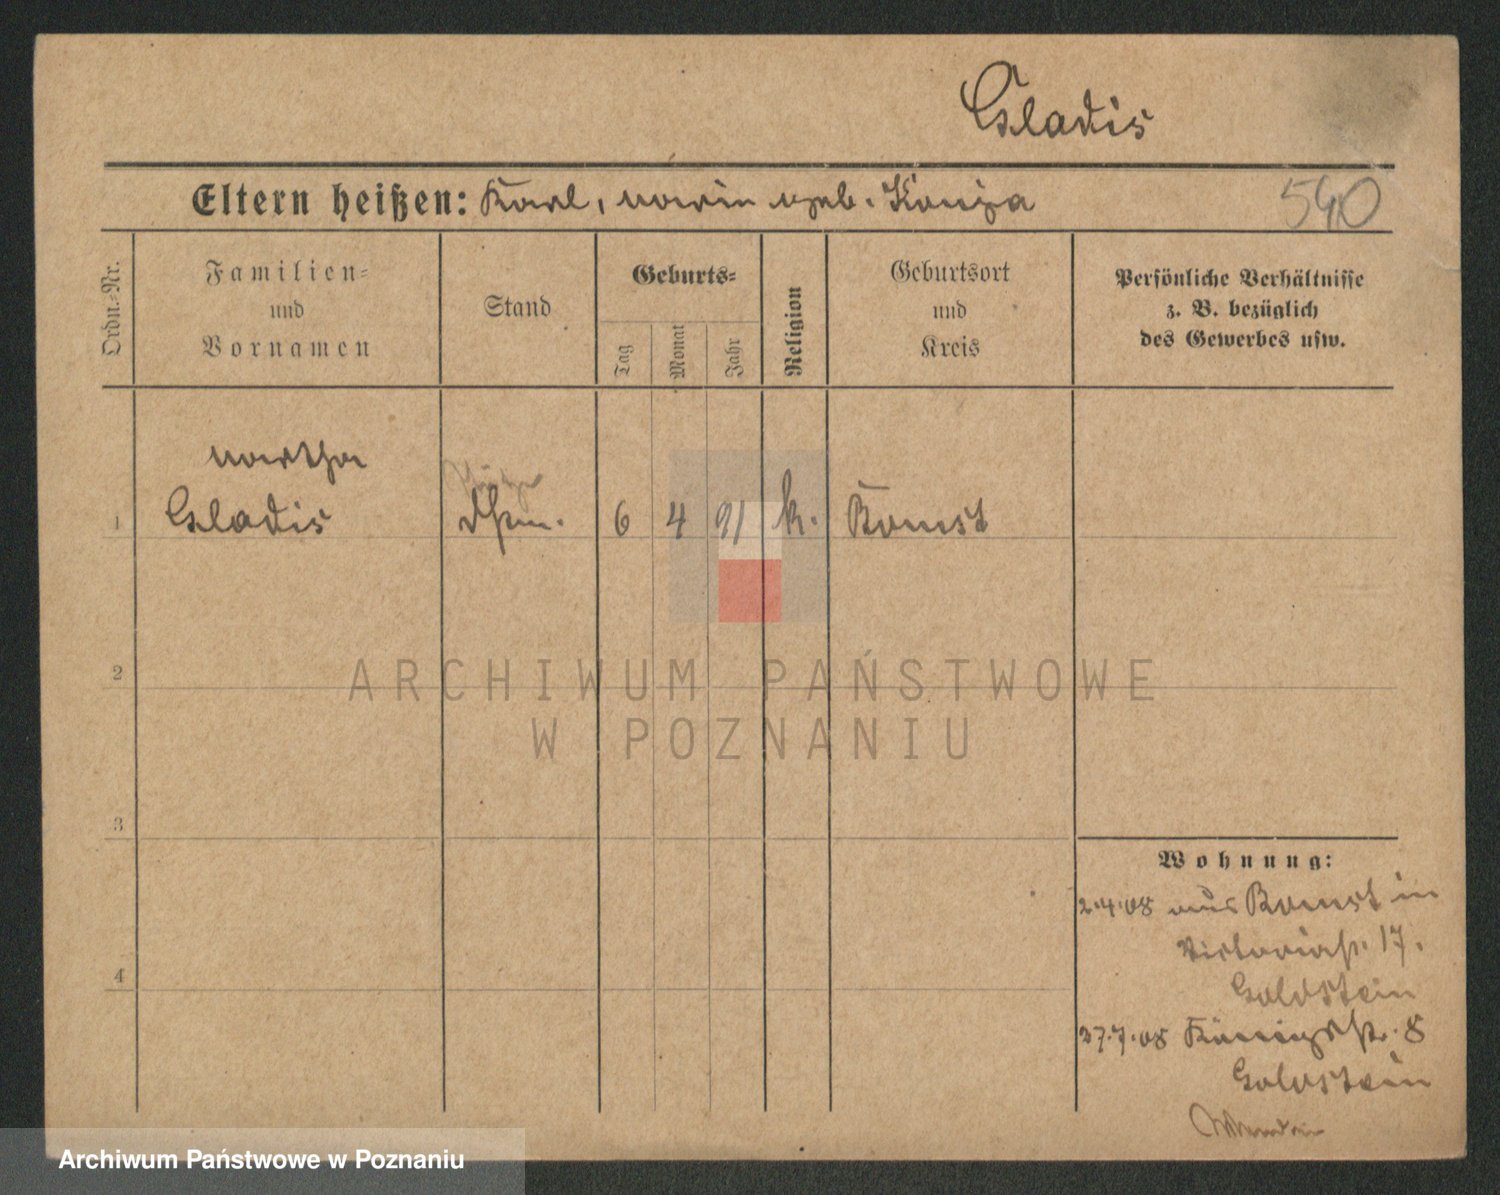 Gladis
Eltern heißen: Karl, Marie geb. Koniza
540
Ordn.=Nr.
Familien=
und
Vornamen
Stand
Geburts=
Tag
Monat
Jahr
Religion
Geburtsort
und
Kreis
Persönliche Verhältnisse
z. B. bezüglich
des Gewerbes usw.
Martha
1 Gladis 6 4 91 k. Bomst
2
3
4
ARCHIWUM PAŃSTWOWE
W POZNANIU
Wohnung:
2.4.08 aus Bomst in
Victoriastr. 17.
Goldstein
27.7.08 Königstr. 8
Goldstein
Archiwum Państwowe w Poznaniu